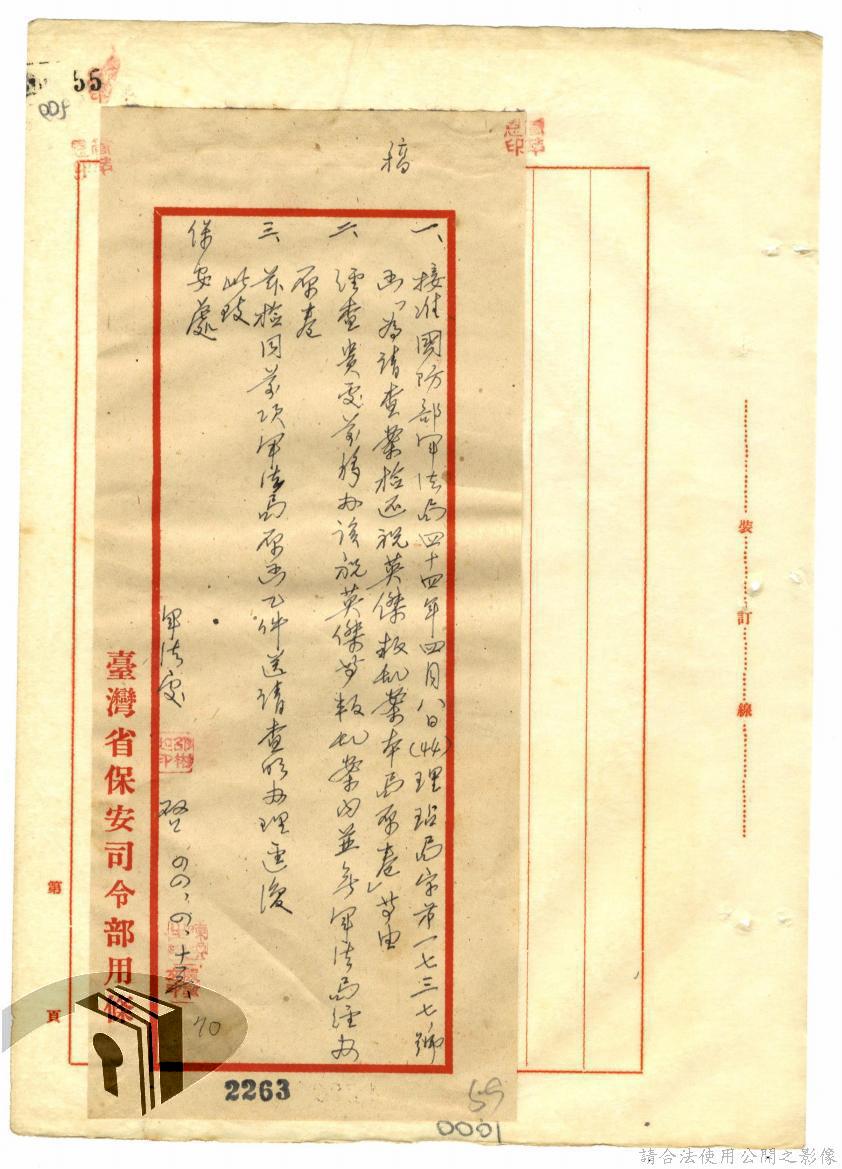 55
005
稿
一、接准國防部軍法局四十四年四月八日(44)理珀局字第一七三七號
函「為請查案檢还祝英傑叛乱案本局原卷」等由
二、經查貴處前移办該祝英傑等叛乱案內並無軍法局經办
原卷
三、茲檢同前項軍法局原函乙件送請查明办理逕復
此致
保安處
軍法處
啓
70
臺灣省保安司令部用條
第 頁
裝 訂 線
2263
59
0001
請合法使用公開之影像